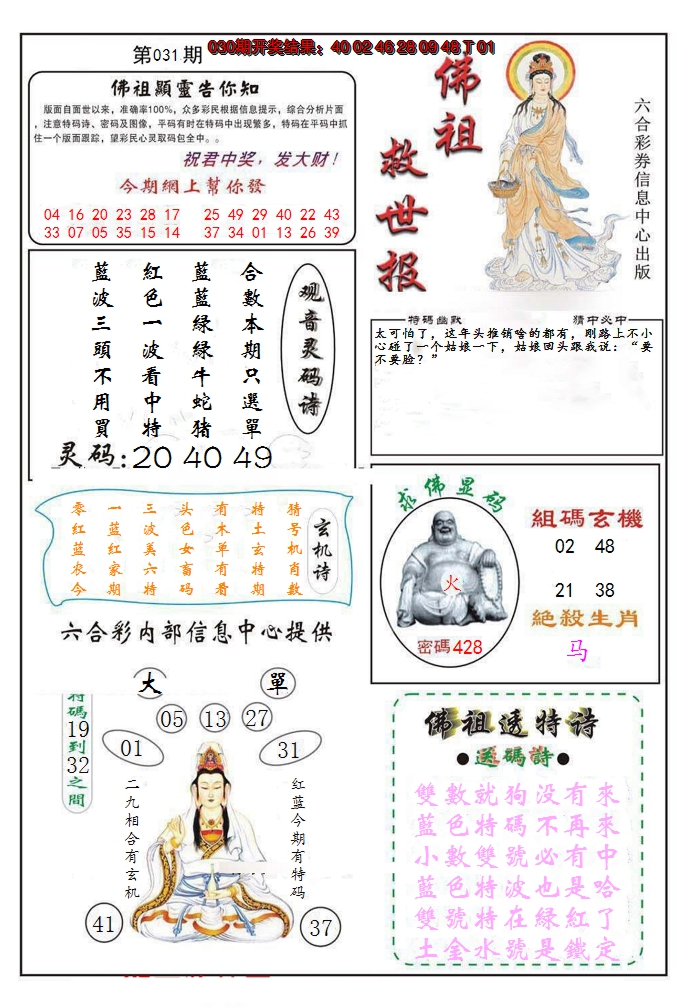 第031期
030期开奖结果：40 02 46 28 09 48 T 01
佛祖顯靈告你知
版面自面世以来，准确率100%，众多彩民根据信息提示，综合分析片面
，注意特码诗、密码及图像，平码有时在特码中出现繁多，特码在平码中抓
住一个版面跟踪，望彩民心灵取码包全中。。
祝君中奖，发大财！
今期網上幫你發
04 16 20 23 28 17 25 49 29 40 22 43
33 07 05 35 15 14 37 34 01 13 26 39
佛祖
救世报
六合彩券信息中心出版
观音灵码诗
合數本期只選單
藍藍綠綠牛蛇猪
紅色一波看中特
藍波三頭不用買
灵码:20 40 49
特碼幽默
猜中必中
太可怕了，这年头推销啥的都有，刚路上不小
心碰了一个姑娘一下，姑娘回头跟我说：“要
不要脸？”
玄机诗
猜号机肖数
特土玄特期
有木单有看
头色女畜码
三波美六特
一蓝红家期
零红蓝农今
六合彩内部信息中心提供
求佛显码
火
密碼428
組碼玄機
02 48
21 38
絶殺生肖
马
大
單
05 13 27
01
31
特碼19到32之間
二九相合有玄机
红蓝今期有特码
41
37
佛祖透特诗
●送碼詩●
雙數就狗没有來
藍色特碼不再來
小數雙號必有中
藍色特波也是哈
雙號特在綠紅了
土金水號是鐵定